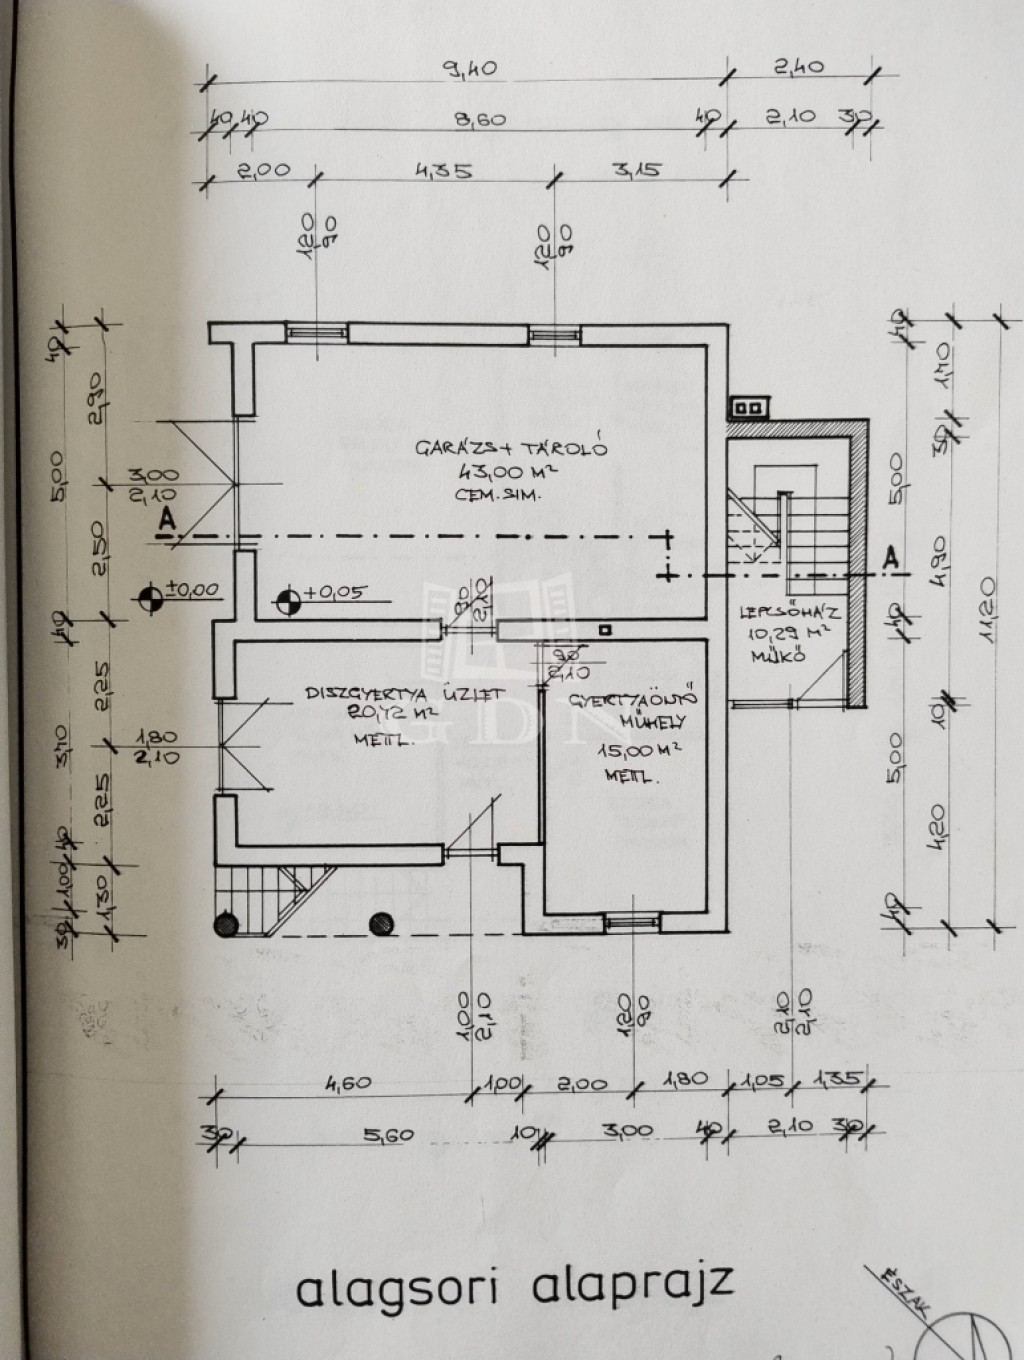 9,40 2,40
40 40 8,60 40 2,10 30
2,00 4,35 3,15
120 90
120 90
40 5,00 40 3,70 40 100 30
2,90 2,50 2,25 2,25 1,30
3,00
2,10
A
±0,00
+0,05
GARÁZS + TÁROLÓ
43,00 M²
CEM. SIM.
90 2,10
90
2,10
A
LÉPCSŐHÁZ
10,29 M²
MŰKŐ
DISZGYERTYA ÜZLET
20,72 M²
METTL.
GYERTYAÖNTŐ
MŰHELY
15,00 M²
METTL.
1,80
2,10
GDN
40 5,00 40 5,00 40
1,70 30 4,90 10 4,20
11,20
100 2,10
120 90
2,10 2,10
4,60 1,00 2,00 1,80 1,05 1,35
30 5,60 10 3,00 40 2,10 30
alagsori alaprajz
ÉSZAK